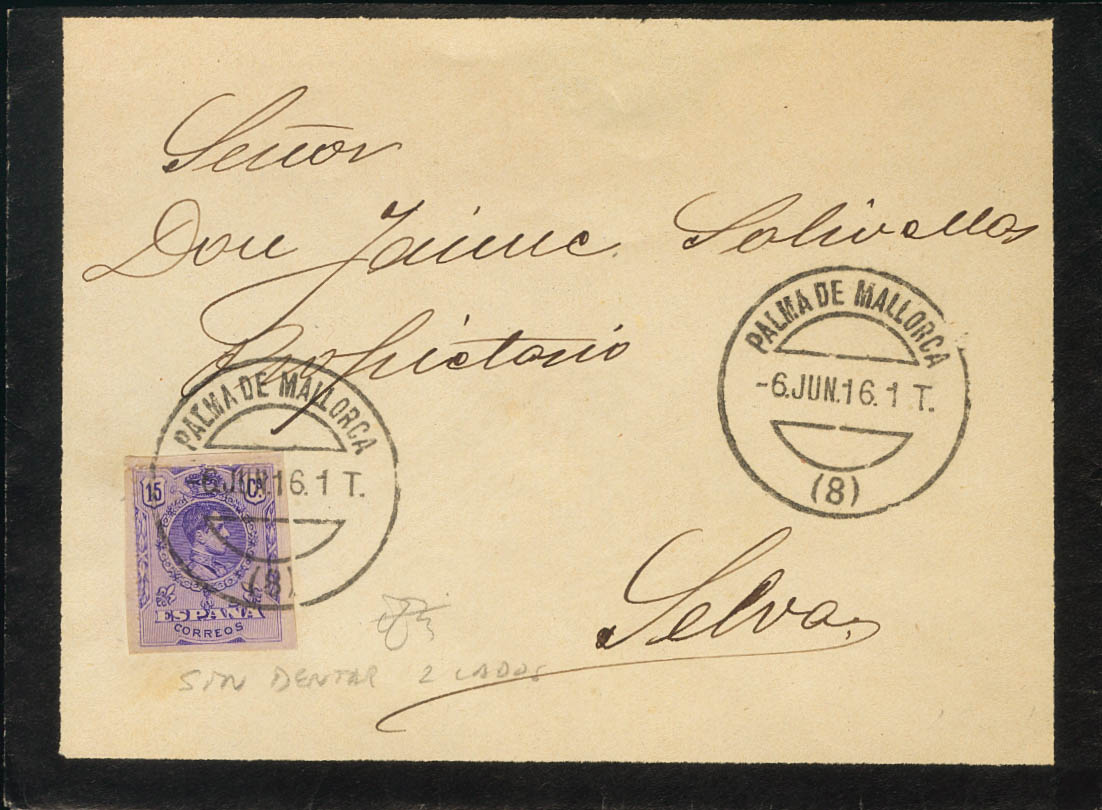 Señor
Don Jaime Solivellas
Propietario
PALMA DE MALLORCA
-6.JUN.16.1 T.
(8)
PALMA DE MALLORCA
-6.JUN.16.1 T.
(8)
15 Cs.
ESPAÑA
CORREOS
Selva
SIN DENTAR 2 LADOS